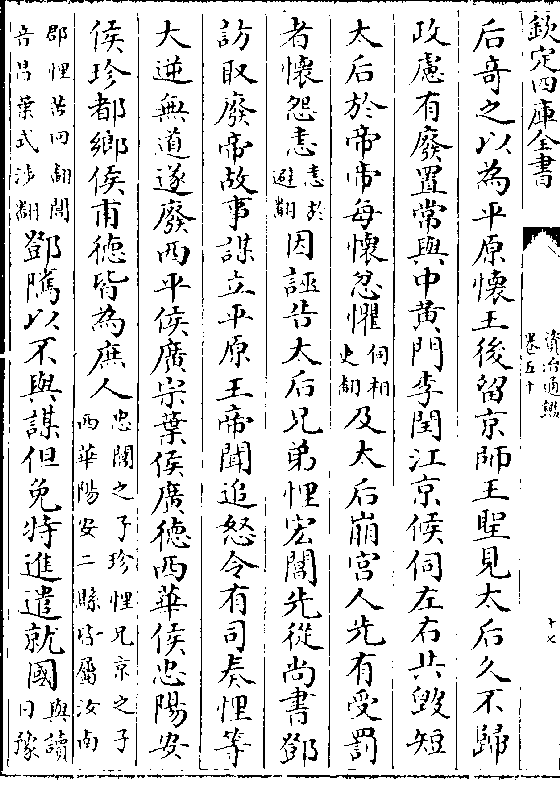 欽定四庫全書
資治通鑑
卷五十
十七
后奇之以為平原懷王後留京師王聖見太后久不歸
政慮有廢置常與中黄門李閏江京候伺左右共毁短
太后於帝帝每懷忿懼伺相吏翻及太后崩宫人先有受罰
者懷怨恚恚於避翻因誣告太后兄弟悝宏閶先從尚書鄧
訪取廢帝故事謀立平原王帝聞追怒令有司奏悝等
大逆無道遂廢西平侯廣宗葉侯廣德西華侯忠陽安
侯珍都鄉侯甫德皆為庶人忠閶之子珍悝兄京之子西華陽安二縣皆屬汝南
郡悝苦回翻閶音昌葉式涉翻鄧隲以不與謀但免特進遣就國與讀曰豫